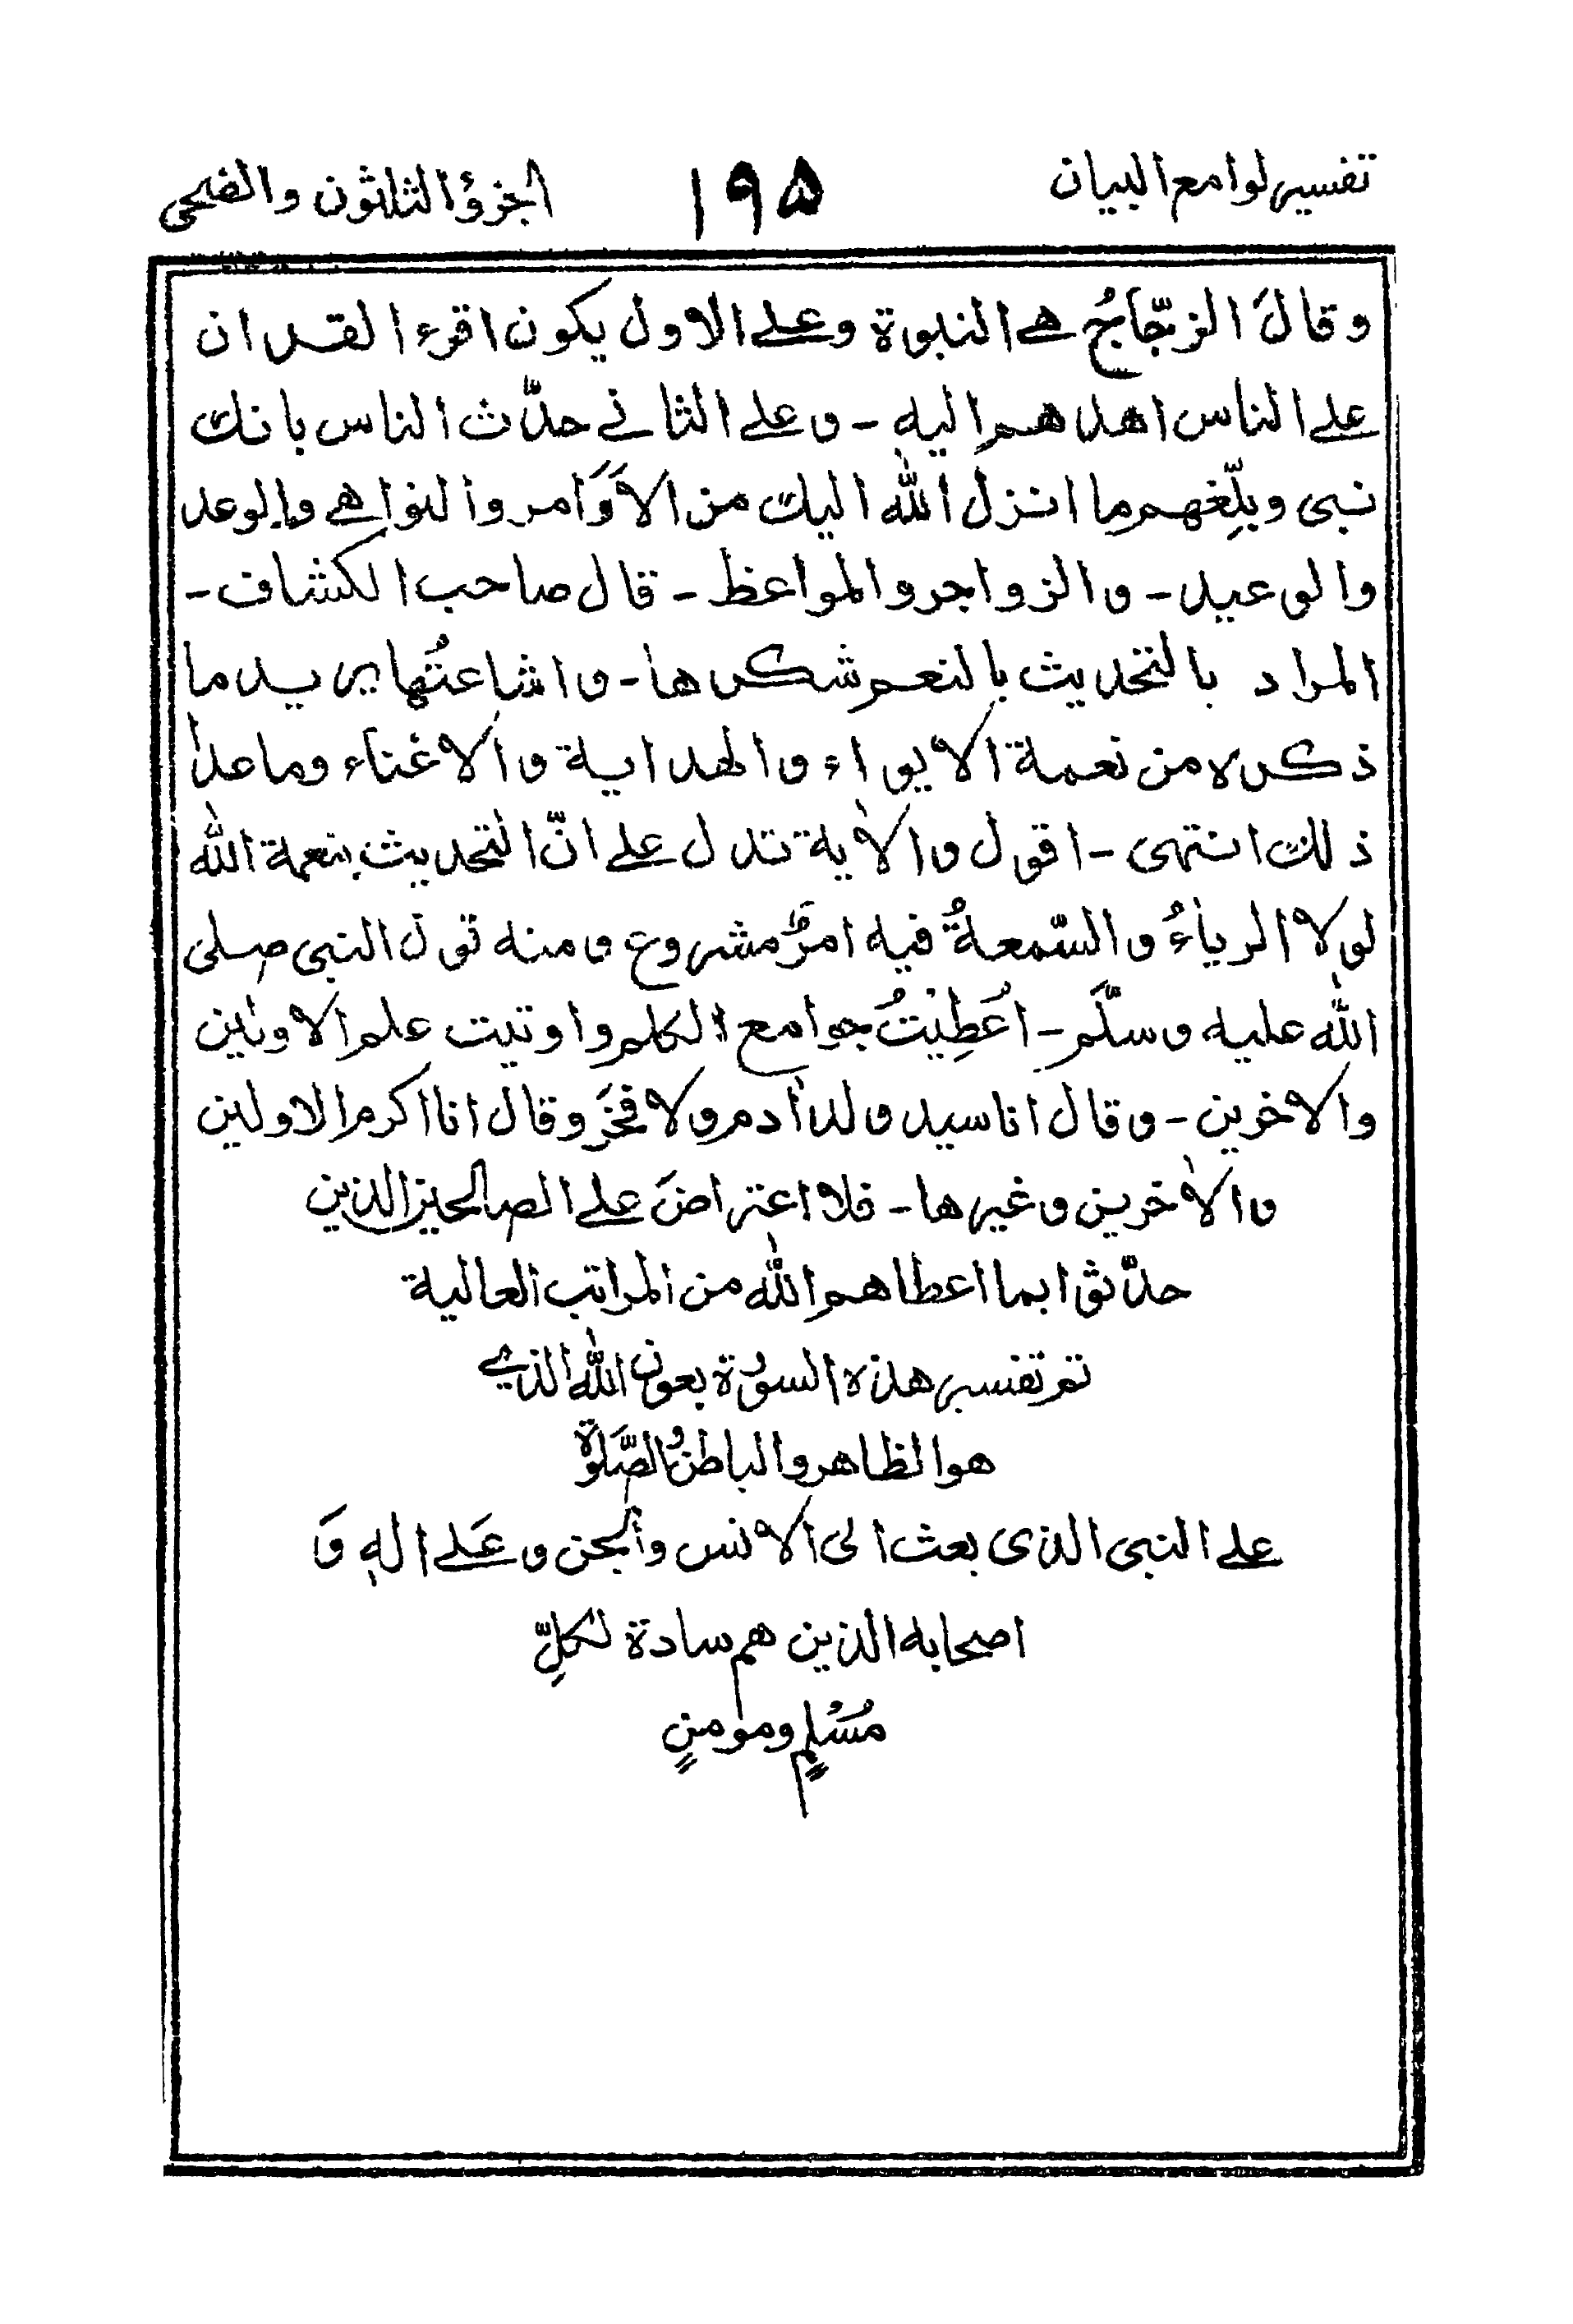 تفسير لوامع البيان ۱۹۵ الجزؤ الثلثون والضحى
وقالَ الزّجّاجُ هے النبوة وعلے الاول يكون اقرء القران
علے الناس اهداهم اليه - وعلے الثانے حدّث الناس بانك
نبى وبلِّغهم ما انزل الله اليك من الاَوَامر والنواهے والوعد
والوعيد - والزواجر والمواعظ - قال صاحب الكشاف -
المراد بالتحديث بالنعم شكرها - واشاعتُها يريد ما
ذكره من نعمة الايواء والهداية والاغناء وما عدا
ذلك انتهى - اقول والاية تدل علے انّ التحديث بنعمة الله
لولا الرياءُ والسّمعةُ فيه امرٌ مشروع ومنه قول النبى صلى
الله عليه وسلّم - اُعطِيْتُ جوامع الكلم واوتيت علم الاولين
والاخرين - وقال انا سيد ولد اٰدم ولا فخَرَ وقال انا اكرم الاولين
والاخرين وغيرها - فلا اعتراضَ علے الصالحين الذين
حدّثوا بما اعطاهم الله من المراتب العالية
تم تفسير هذه السورة بعون الله الذے
هو الظاهر والباطنُ والصَّلوٰة
علے النبى الذى بعث الى الانس والجن وعَلے الهٖ وَ
اصحابه الذين هم سادة لكلِّ
مُسْلمٍ ومؤمنٍ